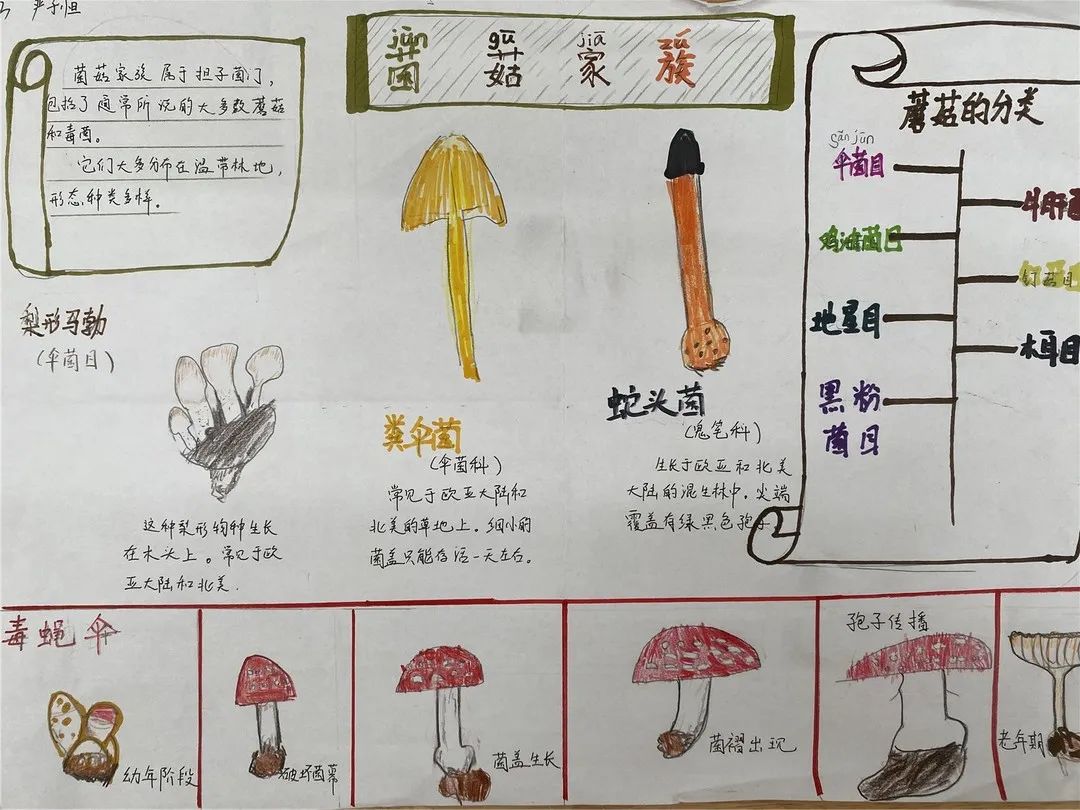 严子恒
jūn gū jiā zú
菌菇家族
菌菇家族属于担子菌门，
包括了通常所说的大多数蘑菇
和毒菌。
它们大多分布在温带林地，
形态、种类多样。
蘑菇的分类
sǎn jūn
伞菌目
牛肝菌
鸡油菌目
钉菇目
地星目
木耳目
黑粉
菌目
梨形马勃
（伞菌目）
这种梨形物种生长
在木头上。常见于欧
亚大陆和北美.
粪伞菌
（伞菌科）
常见于欧亚大陆和
北美的草地上。细小的
菌盖只能存活一天左右。
蛇头菌
（鬼笔科）
生长于欧亚和北美
大陆的混生林中。尖端
覆盖有绿黑色孢子
毒蝇伞
幼年阶段
破坏菌幕
菌盖生长
菌褶出现
孢子传播
老年期